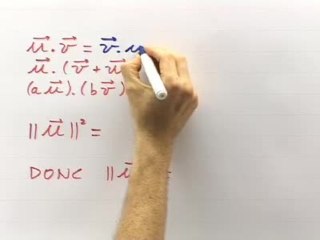 u⃗ . v⃗ = v⃗ . u
u⃗ . (v⃗ + u⃗
(a u⃗) . (b v⃗)
|| u⃗ ||² =
DONC || u⃗